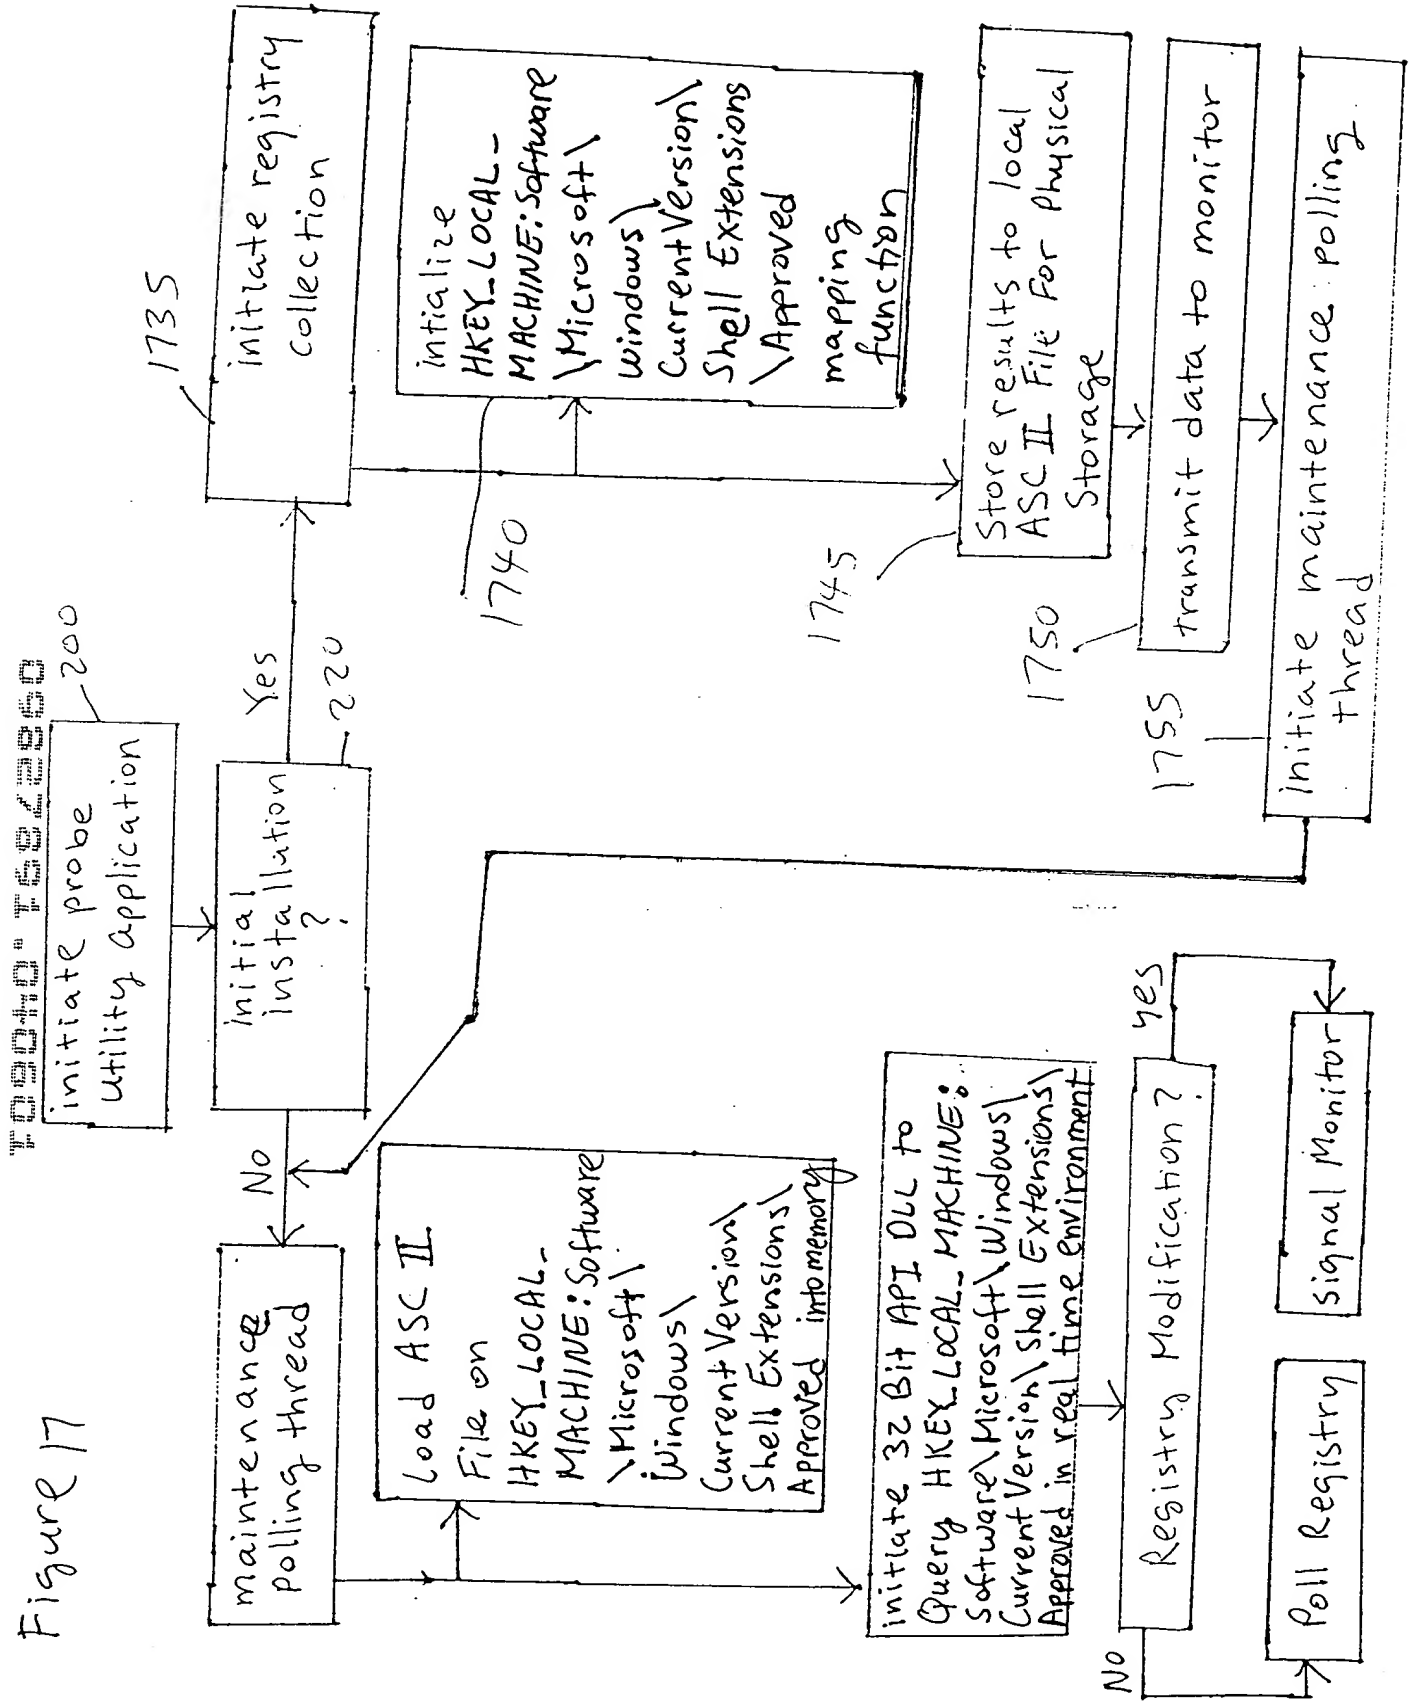 09827891.040601
Figure 17
initiate probe
utility application
200
initial
installation
?
220
Yes
No
1735
initiate registry
collection
1740
intialize
HKEY_LOCAL_
MACHINE:Software
\Microsoft\
Windows\
CurrentVersion\
Shell Extensions
\Approved
mapping
function
1745
Store results to local
ASC II File For Physical
Storage
1750
transmit data to monitor
1755
Initiate maintenance polling
thread
maintenance
polling thread
Load ASC II
File on
HKEY_LOCAL_
MACHINE:Software
\Microsoft\
Windows\
CurrentVersion\
Shell Extensions\
Approved into memory
initiate 32 Bit API DLL to
Query HKEY_LOCAL_MACHINE:
Software\Microsoft\Windows\
CurrentVersion\Shell Extensions\
Approved in real time environment
Registry Modification?
yes
No
Signal Monitor
Poll Registry